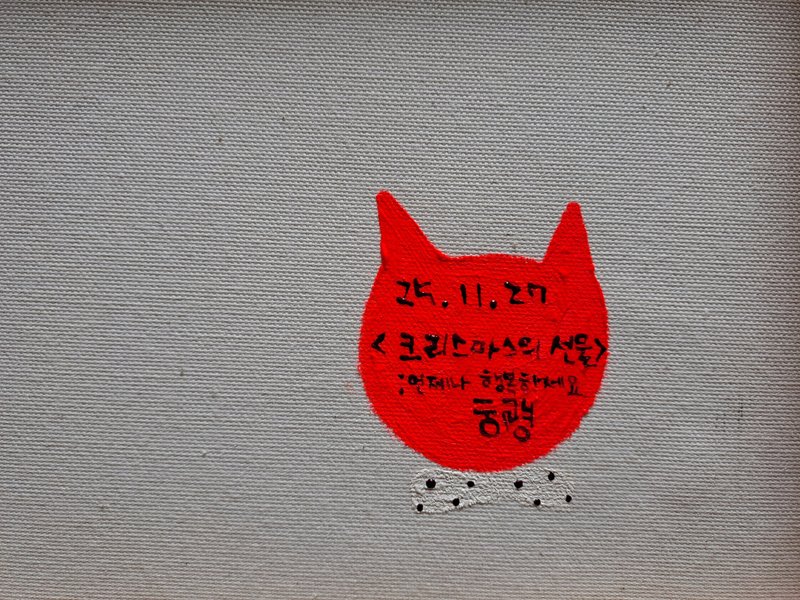 25.11.27
<크리스마스의 선물>
:언제나 행복하세요